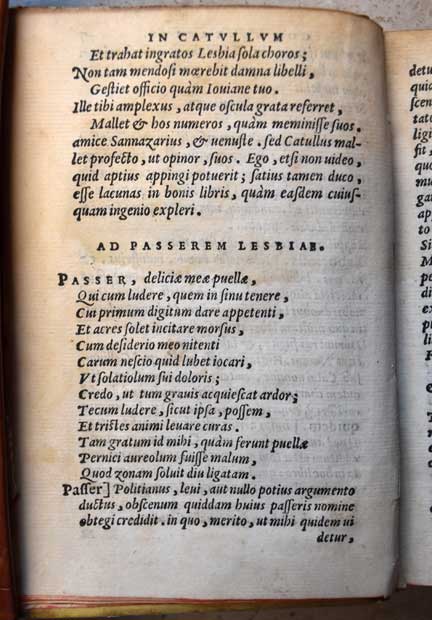 IN CATVLLVM
Et trahat ingratos Lesbia sola choros;
Non tam mendosi mœrebit damna libelli,
Gestiet officio quàm Iouiane tuo.
Ille tibi amplexus, atque oscula grata referret,
Mallet & hos numeros, quàm meminisse suos.
amice Sannazarius, & uenuste. sed Catullus mal-
let profecto, ut opinor, suos. Ego, etsi non uideo,
quid aptius appingi potuerit; satius tamen duco,
esse lacunas in bonis libris, quàm easdem cuius-
quam ingenio expleri.
AD PASSEREM LESBIAE.
PASSER, deliciæ meæ puellæ,
Qui cum ludere, quem in sinu tenere,
Cui primum digitum dare appetenti,
Et acres solet incitare morsus,
Cum desiderio meo nitenti
Carum nescio quid lubet iocari,
Vt solatiolum sui doloris;
Credo, ut tum grauis acquiescat ardor;
Tecum ludere, sicut ipsa, possem,
Et tristes animi leuare curas.
Tam gratum id mihi, quàm ferunt puellæ
Pernici aureolum fuisse malum,
Quod zonam soluit diu ligatam.
Passer] Politianus, leui, aut nullo potius argumento
ductus, obscenum quiddam huius passeris nomine
obtegi credidit. in quo, merito, ut mihi quidem ui
detur,